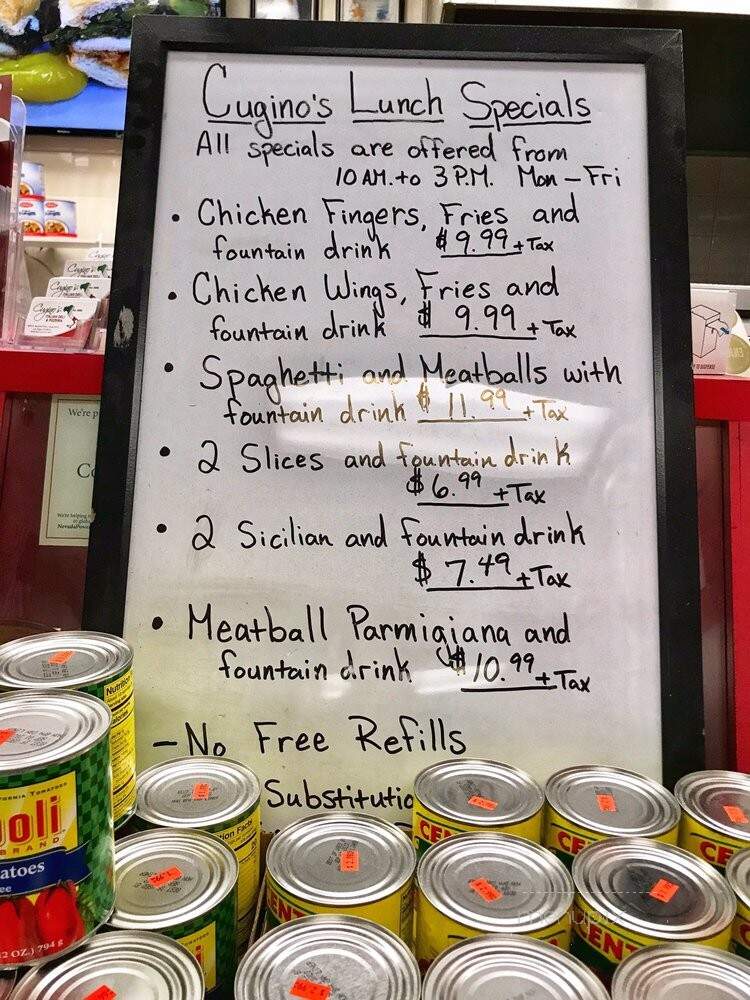 Cugino's Lunch Specials
All specials are offered from
10 A.M. to 3 P.M. Mon – Fri
• Chicken Fingers, Fries and
fountain drink $9.99 + Tax
• Chicken Wings, Fries and
fountain drink $9.99 + Tax
• Spaghetti and Meatballs with
fountain drink $11.99 + Tax
• 2 Slices and fountain drink
$6.99 + Tax
• 2 Sicilian and fountain drink
$7.49 + Tax
• Meatball Parmigiana and
fountain drink $10.99 + Tax
– No Free Refills
Substitutio
We're p
Nutrition
Nutrition Facts
oli
BRAND
atoes
2 OZ.) 794 g
CE
CENT
CENT
CENT